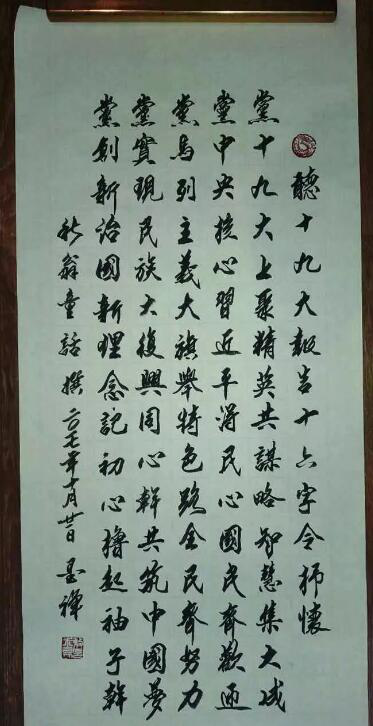 聽十九大報告十六字令抒懷
黨十九大上聚精英共謀略智慧集大成
黨中央核心習近平得民心國民齊歡迎
黨馬列主義大旗舉特色路全民齊努力
黨實現民族大復興同心幹共筑中國夢
黨創新治國新理念記初心擼起袖子幹
秋翁童話撰二〇一七年十月廿日墨禪